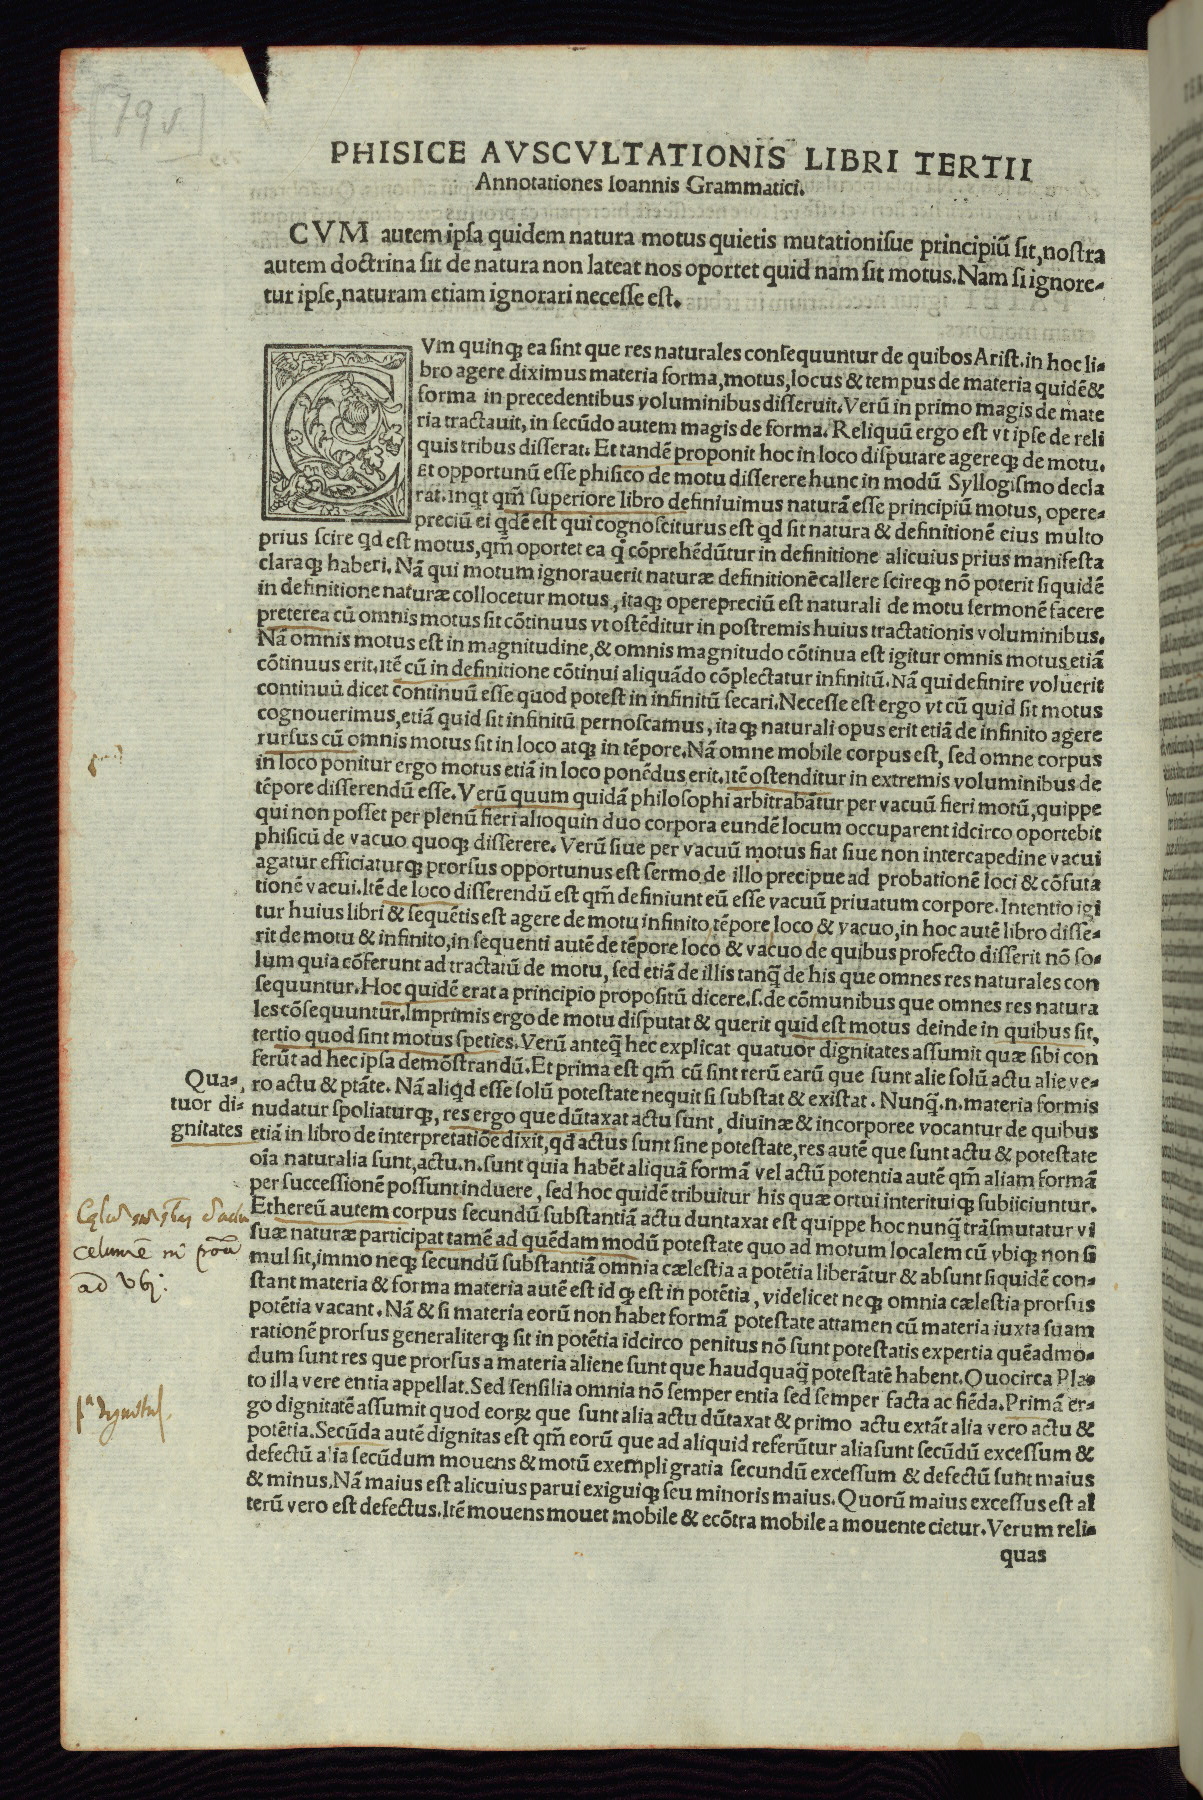 [79 v]
PHISICE AVSCVLTATIONIS LIBRI TERTII
Annotationes Ioannis Grammatici.
CVM autem ipsa quidem natura motus quietis mutationisue principiū sit, nostra
autem doctrina sit de natura non lateat nos oportet quid nam sit motus. Nam si ignore-
tur ipse, naturam etiam ignorari necesse est.
CVm quinqꝫ ea sint que res naturales consequuntur de quibos Arist. in hoc li-
bro agere diximus materia forma, motus, locus & tempus de materia quidē &
forma in precedentibus voluminibus disseruit. Verū in primo magis de mate
ria tractauit, in secūdo autem magis de forma. Reliquū ergo est vt ipse de reli
quis tribus disserat. Et tandē proponit hoc in loco disputare agereqꝫ de motu.
Et opportunū esse phisico de motu disserere hunc in modū Syllogismo decla
rat. inqt qm̄ superiore libro definiuimus naturā esse principiū motus, opere-
preciū ei qdē est qui cogniturus est qd sit natura & definitionē eius multo
prius scire qd est motus, qm̄ oportet ea q̄ cōprehēdūtur in definitione alicuius prius manifesta
claraqꝫ haberi. Nā qui motum ignorauerit naturæ definitionē callere scireqꝫ nō poterit siquidē
in definitione naturæ collocetur motus, itaqꝫ operepreciū est naturali de motu sermonē facere
preterea cū omnis motus sit cōtinuus vt ostēditur in postremis huius tractationis voluminibus.
Nā omnis motus est in magnitudine, & omnis magnitudo cōtinua est igitur omnis motus etiā
cōtinuus erit. itē cū in definitione cōtinui aliquādo cōplectatur infinitū. Nā qui definire voluerit
continuū dicet continuū esse quod potest in infinitū secari. Necesse est ergo vt cū quid sit motus
cognouerimus, etiā quid sit infinitū pernoscamus, itaqꝫ naturali opus erit etiā de infinito agere
rursus cū omnis motus sit in loco atqꝫ in tēpore. Nā omne mobile corpus est, sed omne corpus
in loco ponitur ergo motus etiā in loco ponēdus erit. itē ostenditur in extremis voluminibus de
tēpore disserendū esse. Verū quum quidā philosophi arbitrabātur per vacuū fieri motū, quippe
qui non posset per plenū fieri alioquin duo corpora eundē locum occuparent idcirco oportebit
phisicū de vacuo quoqꝫ disserere. Verū siue per vacuū motus fiat siue non intercapedine vacui
agatur efficiaturqꝫ prorsus opportunus est sermo de illo precipue ad probationē loci & cōfuta
tionē vacui. Itē de loco disserendū est qm̄ definiunt eū esse vacuū priuatum corpore. Intentio igi
tur huius libri & sequētis est agere de motu infinito tēpore loco & vacuo, in hoc autē libro disse-
rit de motu & infinito, in sequenti autē de tēpore loco & vacuo de quibus profecto disserit nō so-
lum quia cōferunt ad tractatū de motu, sed etiā de illis tanq̄ de his que omnes res naturales con
sequuntur. Hoc quidē erat a principio propositū dicere. s. de cōmunibus que omnes res natura
les cōsequuntur. Imprimis ergo de motu disputat & querit quid est motus deinde in quibus sit,
tertio quod sint motus speties. Verū anteq̄ hec explicat quatuor dignitates assumit quæ sibi con
ferūt ad hec ipsa demōstrandū. Et prima est qm̄ cū sint rerū earū que sunt alie solū actu alie ve-
ro actu & ptāte. Nā aliqd esse solū potestate nequit si substat & existat. Nunq̄. n. materia formis
nudatur spoliaturqꝫ, res ergo que dūtaxat actu sunt, diuinæ & incorporee vocantur de quibus
etiā in libro de interpretatiōe dixit, qd actus sunt sine potestate, res autē que sunt actu & potestate
oīa naturalia sunt, actu. n. sunt quia habēt aliquā formā vel actū potentia autē qm̄ aliam formā
per successionē possunt induere, sed hoc quidē tribuitur his quæ ortui interituiqꝫ subiiciuntur.
Ethereū autem corpus secundū substantiā actu duntaxat est quippe hoc nunq̄ trāsmutatur vi
suæ naturæ participat tamē ad quēdam modū potestate quo ad motum localem cū vbiqꝫ non si
mul sit, immo neqꝫ secundū substantiā omnia cælestia a potētia liberātur & absunt siquidē con-
stant materia & forma materia autē est id qꝫ est in potētia, videlicet neqꝫ omnia cælestia prorsus
potētia vacant. Nā & si materia eorū non habet formā potestate attamen cū materia iuxta suam
rationē prorsus generaliterqꝫ sit in potētia idcirco penitus nō sunt potestatis expertia quēadmo-
dum sunt res que prorsus a materia aliene sunt que haudquaq̄ potestatē habent. Quocirca Pla-
to illa vere entia appellat. Sed sensilia omnia nō semper entia sed semper facta ac fiēda. Primā er-
go dignitatē assumit quod eorꝫ que sunt alia actu dūtaxat & primo actu extāt alia vero actu &
potētia. Secūda autē dignitas est qm̄ eorū que ad aliquid referūtur alia sunt secūdū excessum &
defectū alia secūdum mouens & motū exempli gratia secundū excessum & defectū sunt maius
& minus. Nā maius est alicuius parui exiguiqꝫ seu minoris maius. Quorū maius excessus est al
terū vero est defectus. Itē mouens mouet mobile & ecōtra mobile a mouente cietur. Verum reli-
quas
Qua-
tuor di-
gnitates
ad vbi:
pᵃ dignitas